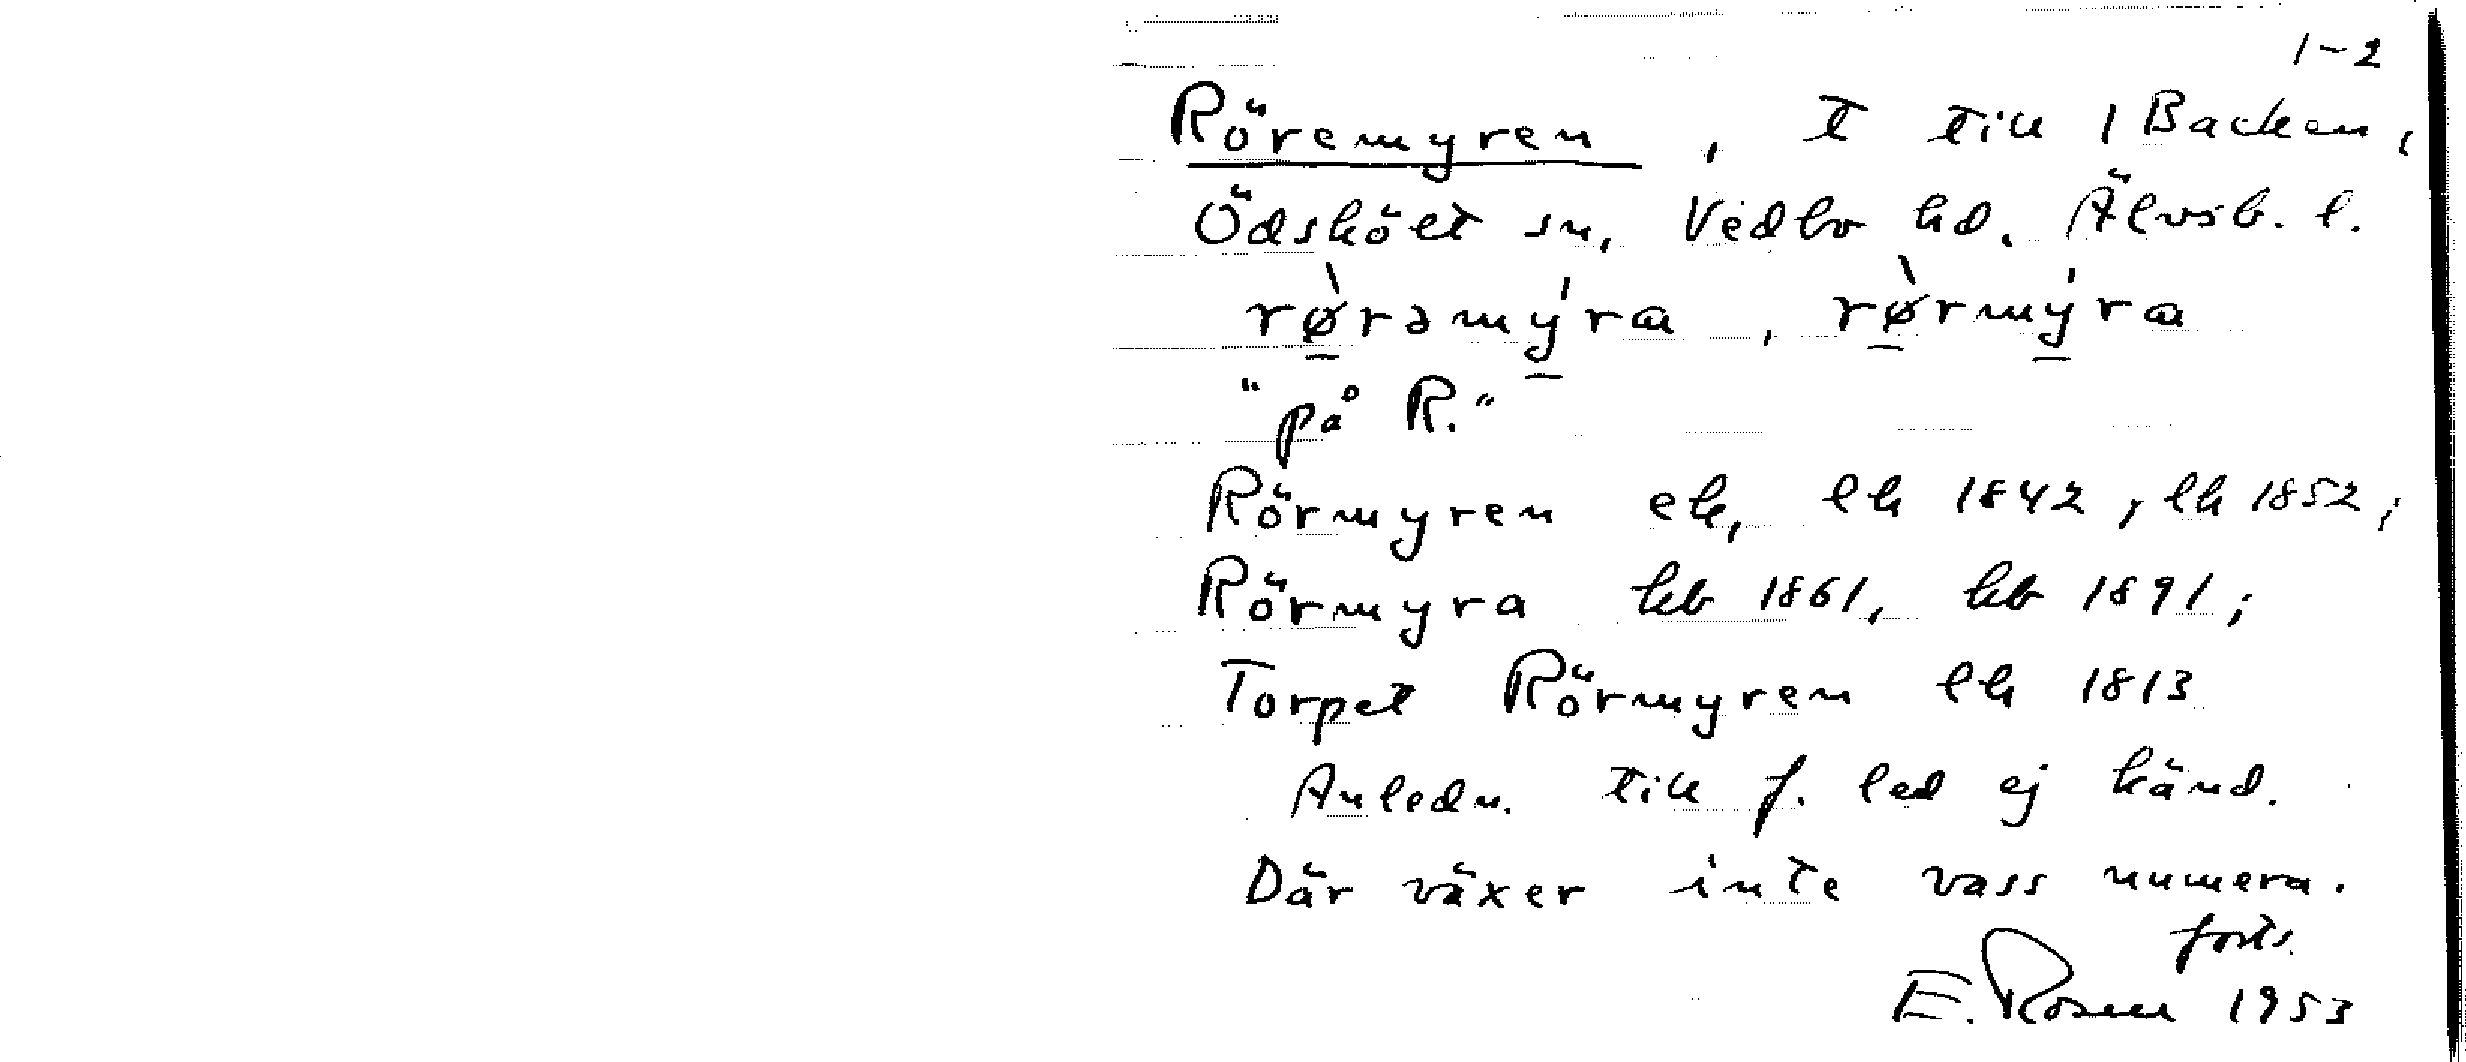 1-2
Röremyren, T till 1 Backen,
Ödskölt sn, Vedbo hd. Älvsb. l.
rø̱̀rəmý̱ra, rø̱̀rmý̱ra
"på R."
Rörmyren ek, lh 1842, lh 1852;
Rörmyra hb 1861, hb 1891;
Torpet Rörmyren lh 1813
Anledn. till f. led ej känd.
Där växer inte vass numera.
forts.
E. Rosell 1953